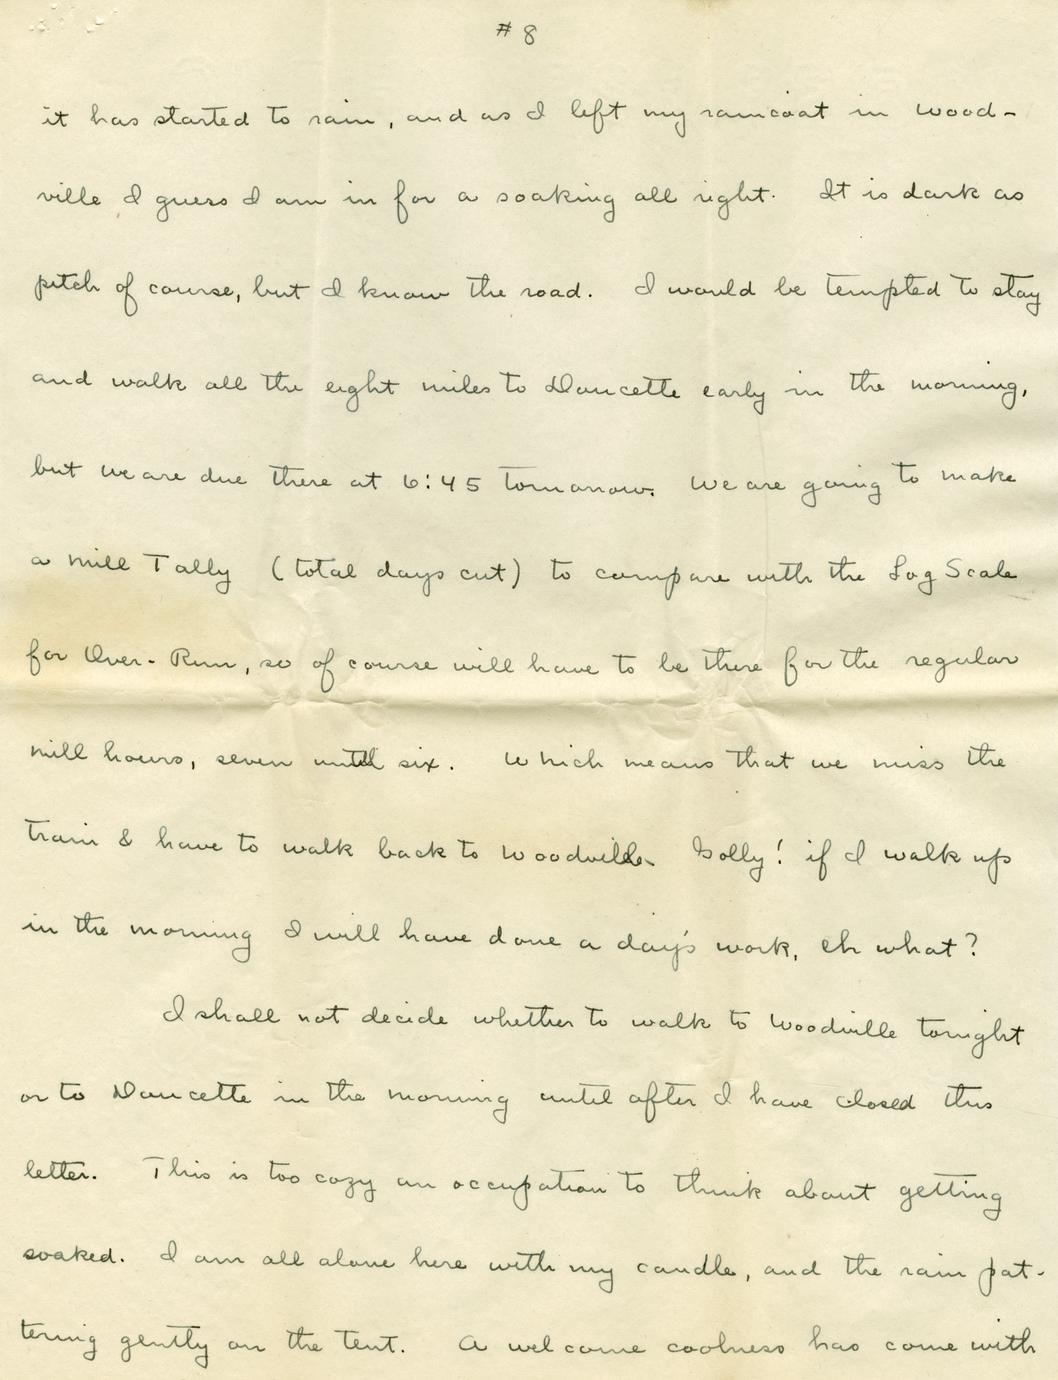 # 8
it has started to rain, and as I left my raincoat in Wood-
ville I guess I am in for a soaking all right. It is dark as
pitch of course, but I know the road. I would be tempted to stay
and walk all the eight miles to Doucette early in the morning,
but we are due there at 6:45 tomorrow. We are going to make
a Mill Tally (total days cut) to compare with the Log Scale
for Over-Run, so of course will have to be there for the regular
mill hours, seven until six. Which means that we miss the
train & have to walk back to Woodville. Golly! if I walk up
in the morning I will have done a day's work, eh what?
I shall not decide whether to walk to Woodville tonight
or to Doucette in the morning until after I have closed this
letter. This is too cozy an occupation to think about getting
soaked. I am all alone here with my candle, and the rain pat-
tering gently on the tent. A welcome coolness has come with